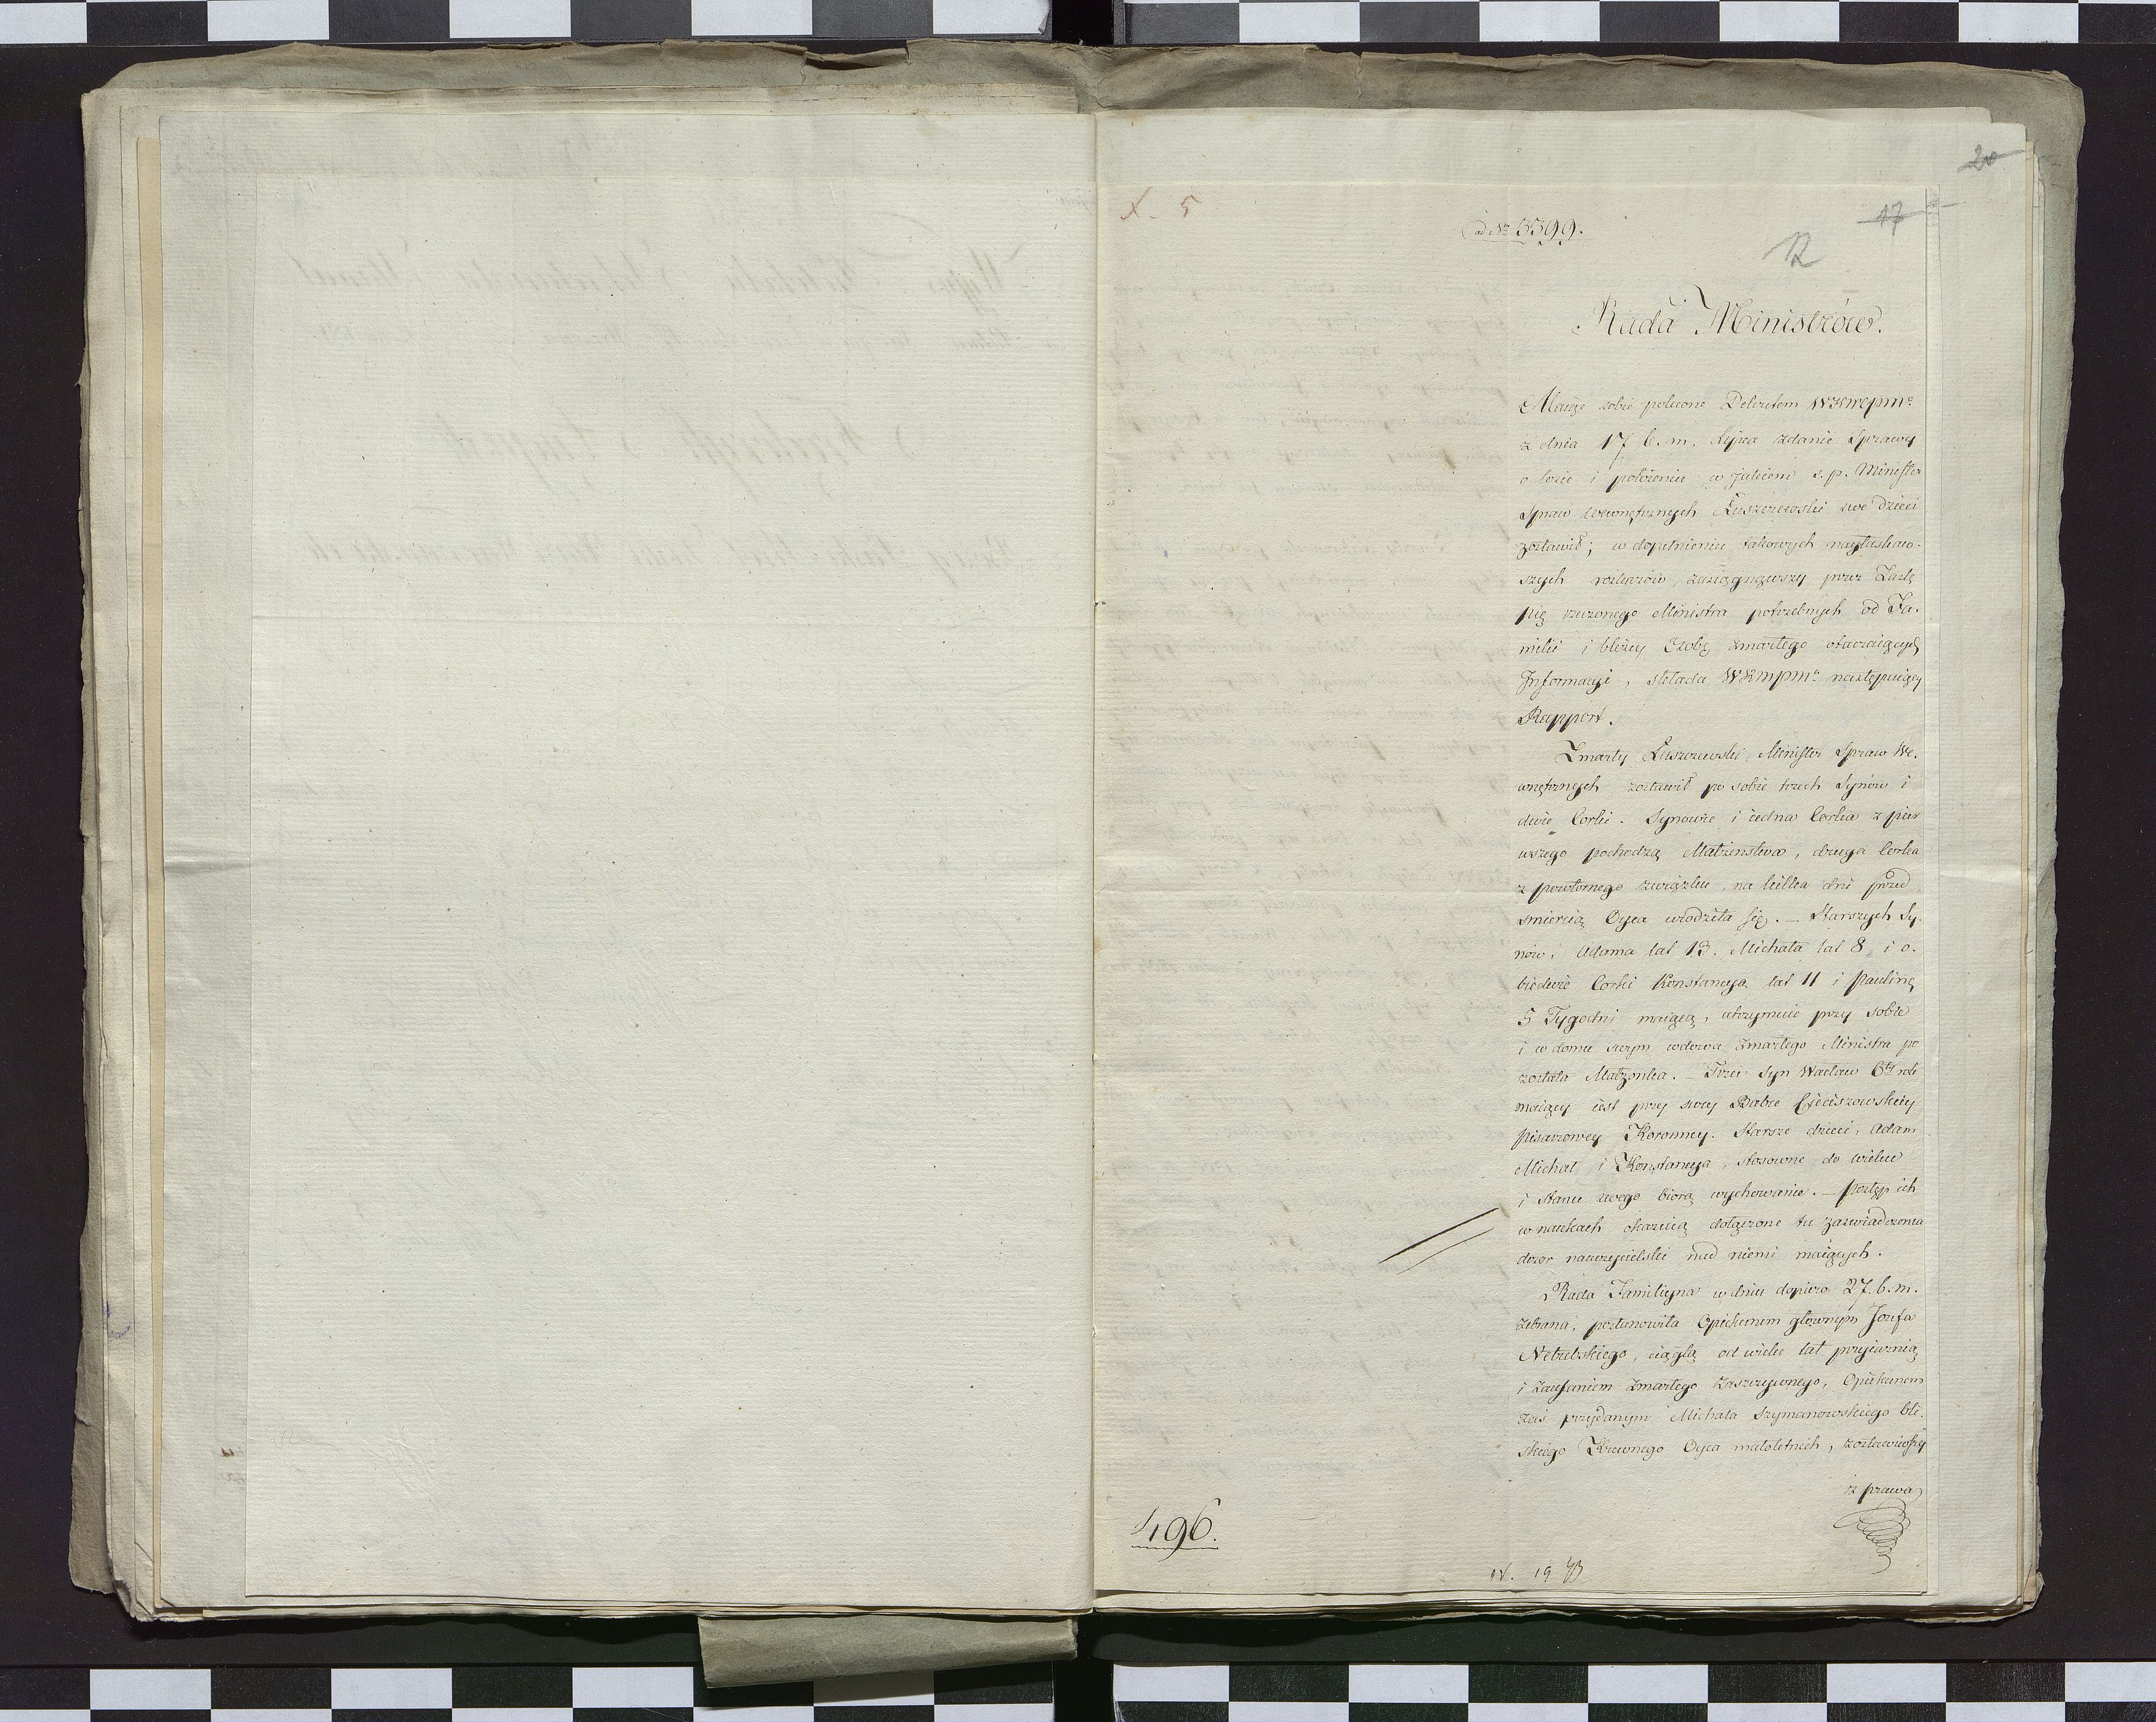 20
17
12
X. 5
ad Nr 3399.
Rada Ministrów.
Maiąc sobie polecone Dekretem WKMcPMo
z dnia 17 b. m. Lipca zdanie Sprawy
o losie i położeniu w jakiem ś. p. Minister
Spraw wewnętrznych Łuszczewski swe dzieci
zostawił; w dopełnieniu takowych naytaskaw-
szych rozkazów, zasiągnąwszy przez Zastę
pcę rzeczonego Ministra potrzebnych od Fa-
milii i bliżey Osobę zmarłego otaczaiących
Informacyi, składa WKMPMo następuiący
Rapport.
Zmarły Łuszczewski Minister Spraw We-
wnętrznych zostawił po sobie trzech Synów i
dwie Corki. Synowie i iedna Corka z pier
wszego pochodzą Małżeństwa, druga Corka
z powtornego związku, na kilka dni przed
śmiercią Oyca urodziła się. — Starszych Sy-
nów, Adama lat 13, Michała lat 8, i o-
biedwie Corki Konstancyą lat 11 i Paulinę
5 Tygodni maiącą, utrzymuie przy sobie
i w domu swym wdowa zmarłego Ministra po
zostala Małżonka. — Trzci Syn Wacław 6ty rok
maiący iest przy swey Babce Cieciszowskiey
Pisarzowey Koronney. Starsze dzieci, Adam
Michał i Konstancya, stosowne do wieku
i stanu swego biorą wychowanie. — Postęp ich
w naukach okazuią dołączone tu zaświadczenia
dozor nauczycielski nad niemi maiących.
Rada Familiyna w dniu dopiero 27. b. m.
zebrana, postanowiła Opiekunem głownym Jozefa
Netrebskiego, ciągłą od wielu lat przyiaznią
i zaufaniem zmarłego zaszczyconego, Opiekunem
zaś przydanym Michała Szymanowskiego bli-
skiego Krewnego Oyca małoletnich, zostawiwszy
z prawa
496.